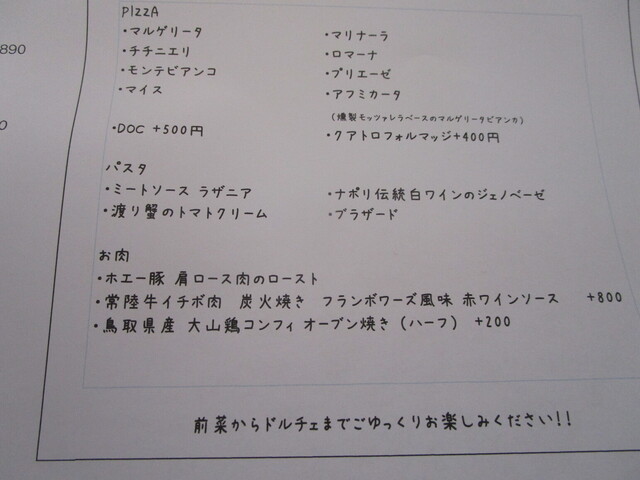 PIZZA
・マルゲリータ ・マリナーラ
・チチニエリ ・ロマーナ
・モンテビアンコ ・プリエーゼ
・マイス ・アフミカータ
(燻製モッツァレラベースのマルゲリータビアンカ)
・DOC +500円 ・クアトロフォルマッジ+400円
パスタ
・ミートソース ラザニア ・ナポリ伝統白ワインのジェノベーゼ
・渡り蟹のトマトクリーム ・ブラザード
お肉
・ホエー豚 肩ロース肉のロースト
・常陸牛イチボ肉 炭火焼き フランボワーズ風味 赤ワインソース +800
・鳥取県産 大山鶏コンフィ オーブン焼き (ハーフ) +200
前菜からドルチェまでごゆっくりお楽しみください!!
890
0